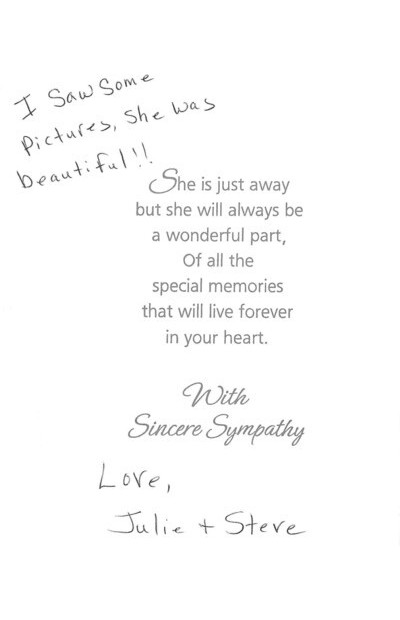 I Saw Some
Pictures, She was
beautiful!!
She is just away
but she will always be
a wonderful part,
Of all the
special memories
that will live forever
in your heart.
With
Sincere Sympathy
Love,
Julie + Steve